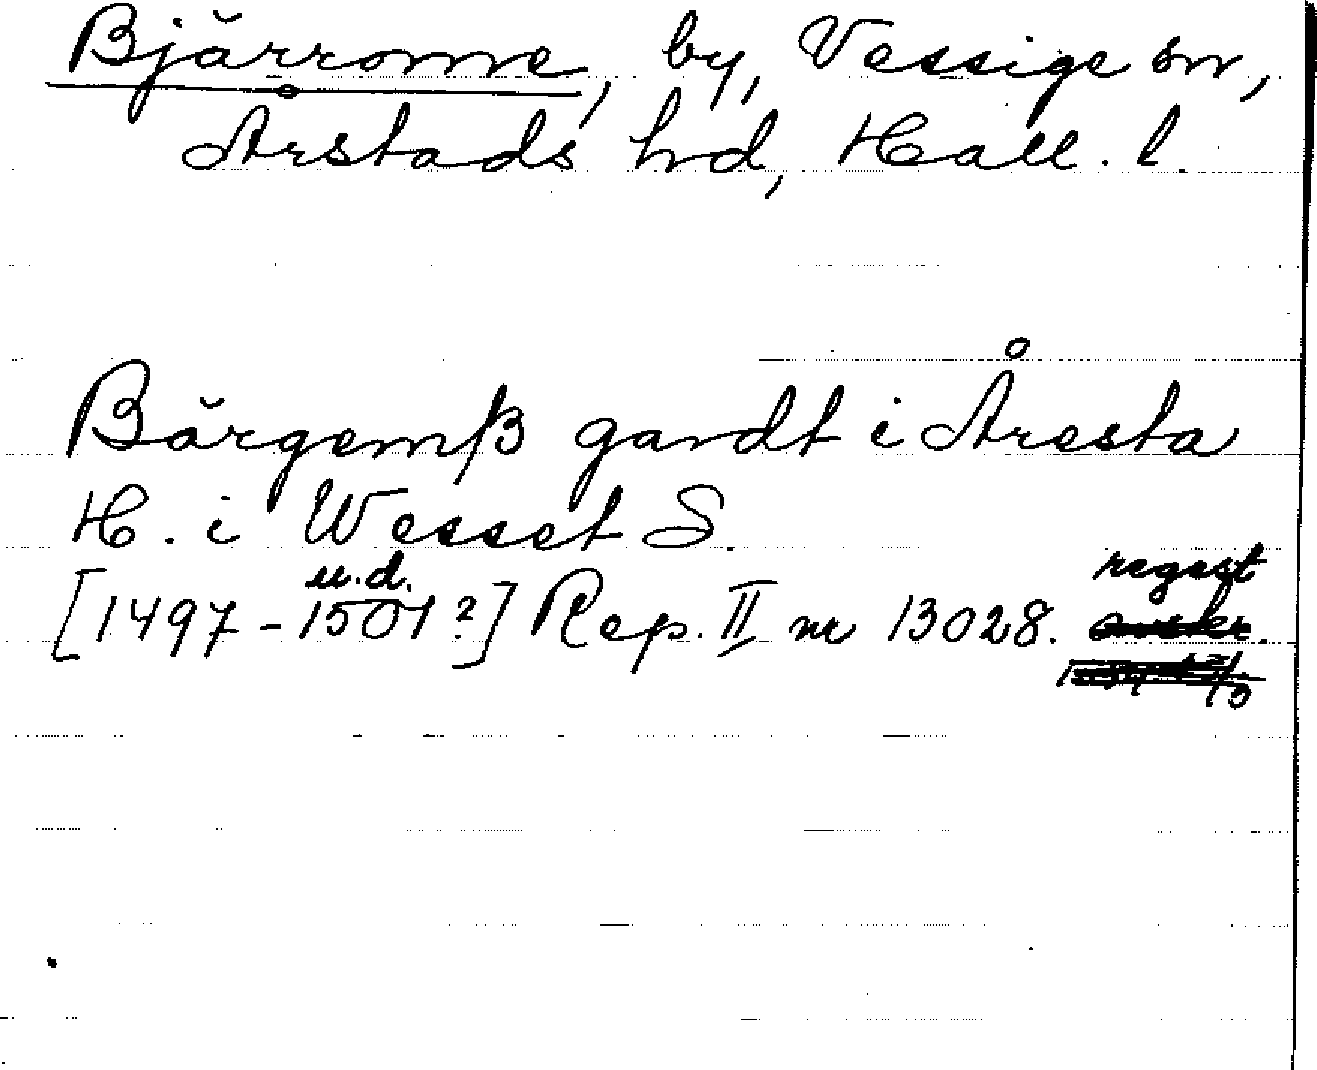 Bjärrome, by, Vessige sn,
Årstads hd, Hall. l.
Bärgemß gardt i Åresta
H. i Wesset S.
u.d. regest
[1497-1501?] Rep. II nr 13028.